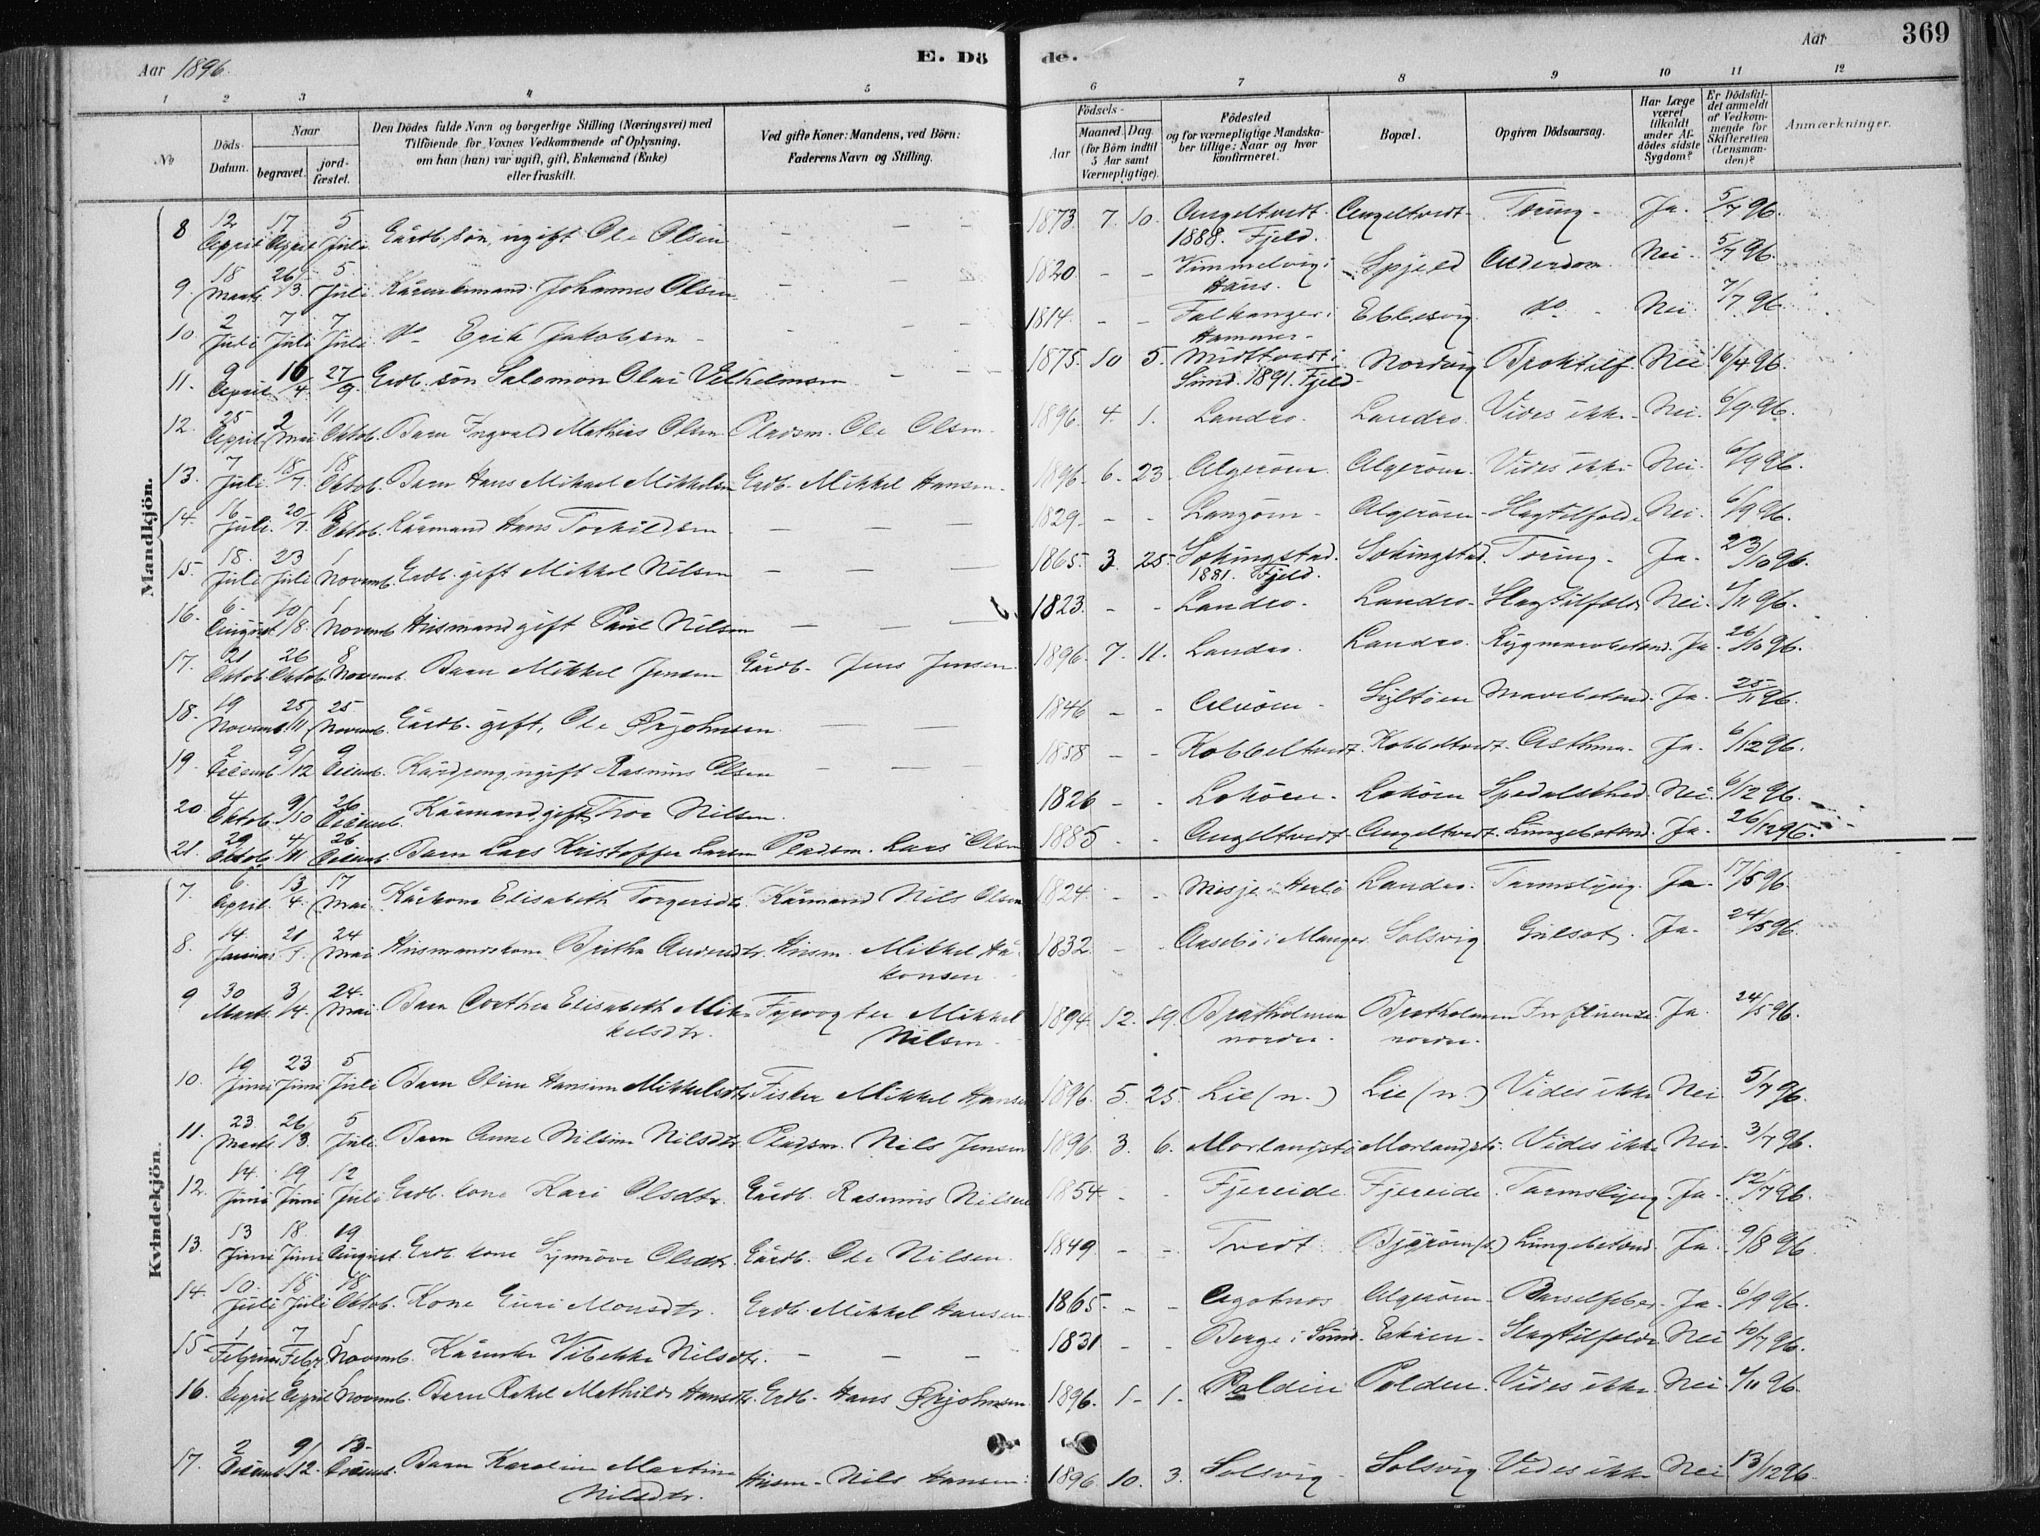 Aar 1896. E. Dö
de. Aar 369
1 2 3 4 5 6 7 8 9 10 11 12
No
Döds-Datum.
Naar begravet. jordfæstet.
Den Dödes fulde Navn og borgerlige Stilling (Næringsvei) med
Tilföiende for Voxnes Vedkommende af Oplysning,
om han (hun) var ugift, gift, Enkemand (Enke)
eller fraskilt.
Ved gifte Koner: Mandens, ved Börn:
Faderens Navn og Stilling.
Födsels-
Aar Maaned. Dag.
(for Börn indtil
5 Aar samt
Værnepligtige).
Födested
og for værnepligtige Mandska-
ber tillige: Naar og hvor
konfirmeret.
Bopæl.
Opgiven Dödsaarsag.
Har Læge
været
tilkaldt
under Af-
dödes sidste
Sygdom?
Er Dödsfal-
det anmeldt
af Vedkom-
mende for
Skifteretten
(Lensman-
den)?
Anmærkninger.
Mandkjön.
8 12 April 17 April 5 Juli Gårdb. søn, ugift Ole Olsen — — — 1873 7. 10. Angeltvedt. 1888. Fjeld. Angeltvedt. Tæring. Ja. 5/7 96.
9. 18 Marts 26/3. 5 Juli Kårenkemand Johannes Olsen — — — 1820 - - Vimmelvig i Haus. Spjeld Alderdom Nei. 5/7 96.
10 2 Juli 7 Juli 7 Juli do Erik Jakobsen — — — 1814. - - Falkanger i Hammer. Ebbesvig do Nei. 7/7 96.
11. 9 April 16/4. 27/9. Grdb. søn Salomon Olai Vilhelmsen — — 1875. 10 5. Midttvedt i Sund. 1891. Fjeld. Nordvig Nei 16/4 96.
12. 25 April 2 Mai 11 Oktob. Barn Ingvald Mathias Olsen Pladsm. Ole Olsen. 1896. 4. 1. Landro. Landro. Vides ikke. Nei. 6/9 96.
13. 7 Juli. 18/7. 18 Oktob. Barn Hans Mikael Mikkelsen Grdb. Mikkel Hansen. 1896. 6. 23. Algerøen. Algerøen. Vides ikke Nei. 6/9 96.
14. 16 Juli. 20/7. 18 Oktob. Kårmand Hans Torkildsen — — — 1829. - - Langøen - Algerøen Slagtilfælde Nei. 6/9 96.
15. 18. Juli 23 Juli 1 Novemb. Grdb. gift Mikkel Nilsen — — — 1865. 3. 25. Sekingstad. 1881. Fjeld. Sekingstad. Tæring. Ja. 23/10 96.
16. 6. August 10/8. 1 Novemb Husmand gift Paul Nilsen — — — 1823. - - Landro. Landro. Slagtilfælde Nei. 1/11 96.
17. 21 Oktob. 26 Oktob. 8 Novemb. Barn Mikkel Jensen Gårdb. Jens Jensen 1896. 7. 11. Landro. Landro. Rygmarvbetænd. Ja. 26/10 96.
18. 19 Novemb 25/11 25. Novemb. Gårdb. gift, Ole Ørjohnsen — — — 1846 - - Syltøen Mavebetænd. Ja. 25/11 96.
19. 2 Decemb 9/12 9 Decemb. Kårdreng, ugift Rasmus Olsen — — — 1858 - - Kobbeltvedt. Kobbeltvedt. Asthma. Ja. 6/12 96.
20 4 Oktob. 9/10 26 Decemb. Kårmand, gift, Thor Nilsen. 1826 - - Lokøen. Lokøen Spedalskhed. Nei. 6/12 96.
21. 29 Oktob. 4/11 26 Decemb. Barn Lars Kristoffer Larsen Pladsm. Lars Olsen 1885 - - Angeltvedt. Angeltvedt. Lungebetænd. Ja. 26/12 96.
Kvindekjön.
7. 6. April. 13/4. 17 Mai. Kårkone Elisabeth Torgersdtr. Kårmand Nils Olsen 1824. - - Misje i Herlø Landro. Tarmslyng. Ja. 17/5 96.
8. 14. Januar 21/1. 24 Mai Husmandskone Britha Andersdtr. Husm. Mikkel Hå-
konsen 1832. - - Aasebø i Manger. Solsvig Gulsot. Ja. 24/5 96.
9 30 Marts 3/4. 24. Mai. Barn Dorthea Elisabeth Mik-
kelsdtr. Fyrvogter Mikkel
Nilsen. 1894. 12. 19. Bratholmen
nordre. Bratholmen
nordre. Influenza Ja. 24/5 96.
10. 19 Juni 23 Juni 5 Juli Barn Oline Hansine Mikkelsdtr. Fisker Mikkel Hansen 1896. 5. 25. Lie (n.) Lie (n.) Vides ikke Nei 5/7 96.
11. 23. Marts 26/3. 5 Juli. Barn Anne Nilsine Nilsdtr. Pladsm. Nils Jensen 1896. 3. 6. Morlandstø Morlandstø. Vides ikke Nei. 3/7 96.
12. 14. Juni 19 Juni 12 Juli Grdb. kone Kari Olsdtr. Gårdb. Rasmus Nilsen 1854. - - Fjereide. Fjereide. Tarmslyng. Ja. 12/7 96.
13. 13 Juni 18. Juni 19 August Grdb. kone Synnøve Olsdtr. Gårdb. Ole Nilsen. 1849 - - Tvedt. Bjørøen Lungebetænd. Ja. 9/8 96.
14. 10. Juli 15 Juli 18 Oktob. Kone Guri Monsdtr. Grdb. Mikkel Hansen. 1865. - - Agotnes Algerøen. Barselfeber. Ja. 6/9 96.
15 1 Februar 7 Febr. 1 Novemb. Kårenke Vibekke Nilsdtr. — — — 1831 - - Berge i Sund. Ekren. Slagtilfælde Nei
16. April April Novemb. Barn Rakel Mathilde Hansdtr. Grdb. Hans Ørjohnsen 1896. 1. 1. Polden Polden. Vides ikke Nei 1/11 96.
17. 2 Decemb 9/12. 13. Decemb. Barn Karoline Martine
Nilsdtr. Husm. Nils Hansen. 1896. 10. 3. Solsvig. Solsvig. Vides ikke Nei 13/12 96.